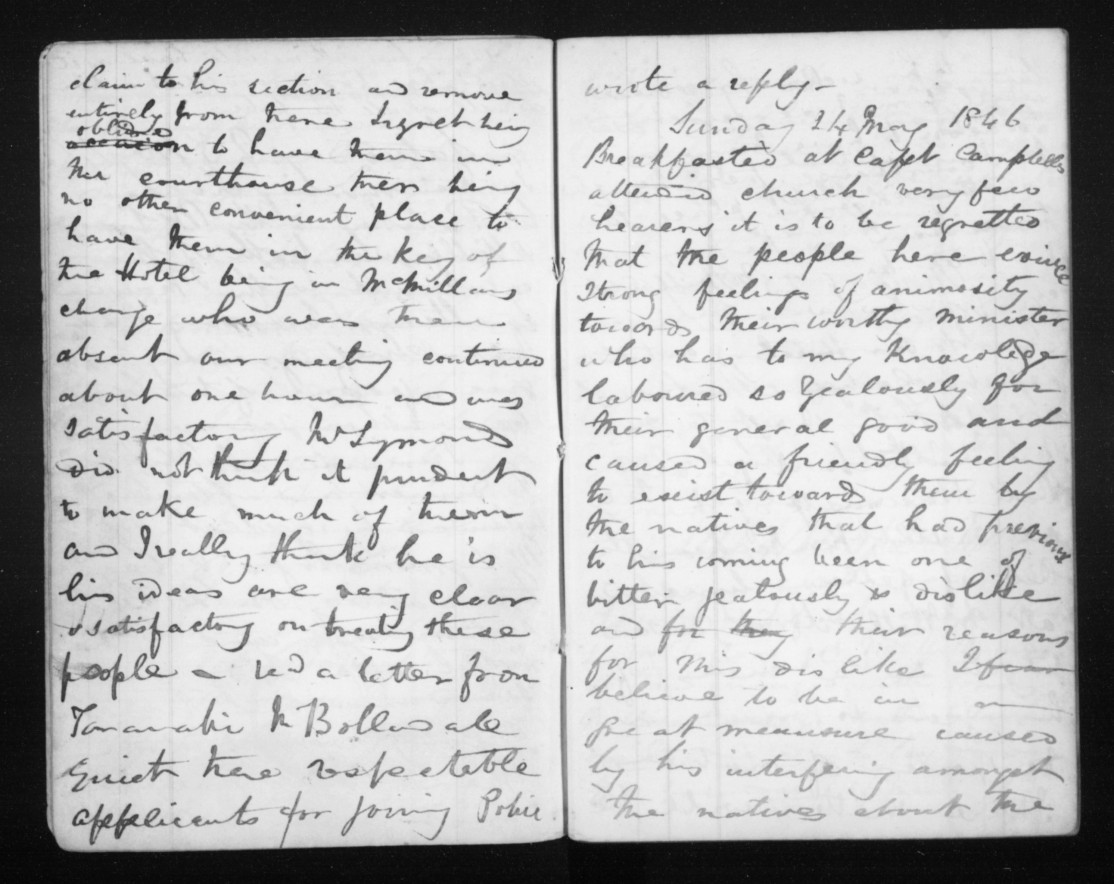 claim to his section and remove
entirely from here I regret being
obliged
occasion to have them in
the courthouse ther being
no other convenient place to
have them in the key of
the Hotel being in McMillans
charge who was then
absent our meeting continued
about one hour and was
satisfactory Mr Symonds
did not think it prudent
to make much of them
and I really think he is
his ideas are very clear
& satisfactory on treating these
people – recd a letter from
Taranaki Mr Bolland all
Quiet there respectable
applicants for joining Police
wrote a reply –
Sunday 24 May 1846
Breakfasted at Capt Campbells
attended church very few
hearers it is to be regretted
that the people here evince
strong feelings of animosity
towards their worthy minister
who has to my knowledge
laboured so zealously for
their general good and
caused a friendly feeling
to exist towards them by
the natives that had previous
to his coming been one of
bitter jealously & dislike
and for they their reasons
for this dislike I fear
believe to be in a
great meausure caused
by his interfering amongst
the natives about the